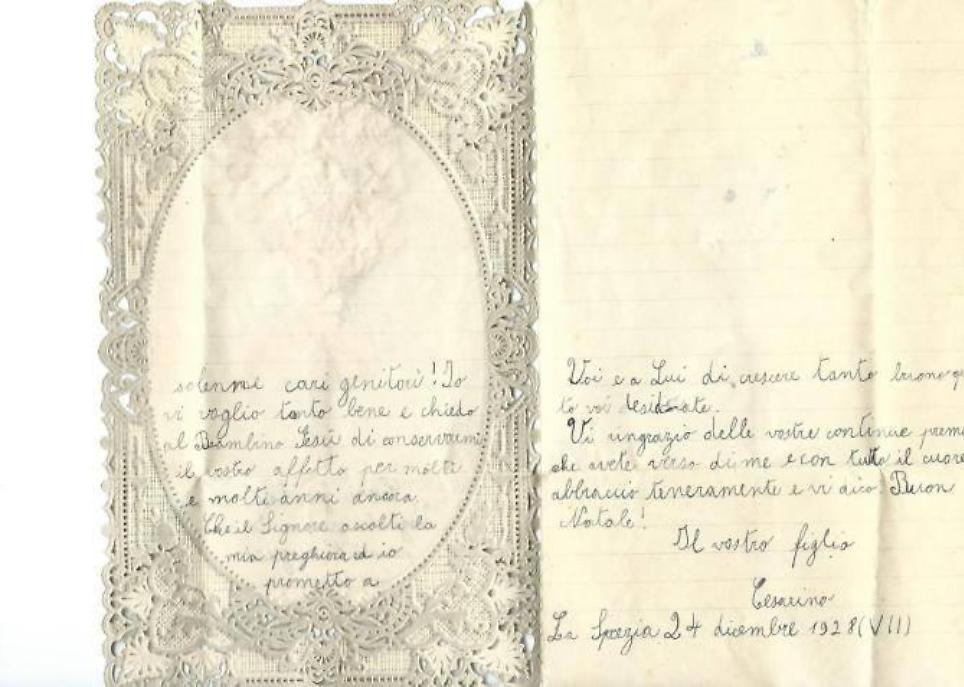 solenni cari genitori! Io
vi voglio tanto bene e chiedo
al Bambino Gesù di conservarmi
il vostro affetto per molti
e molti anni ancora.
Che il Signore ascolti la
mia preghiera ed io
prometto a
Voi e a Lui di crescere tanto buono
to voi desiderate.
Vi ringrazio delle vostre continue prem
che avete verso di me e con tutto il cuore
abbraccio teneramente e vi dico: Buon
Natale!
Il vostro figlio
Cesarino
La Spezia 24 dicembre 1928 (VII)